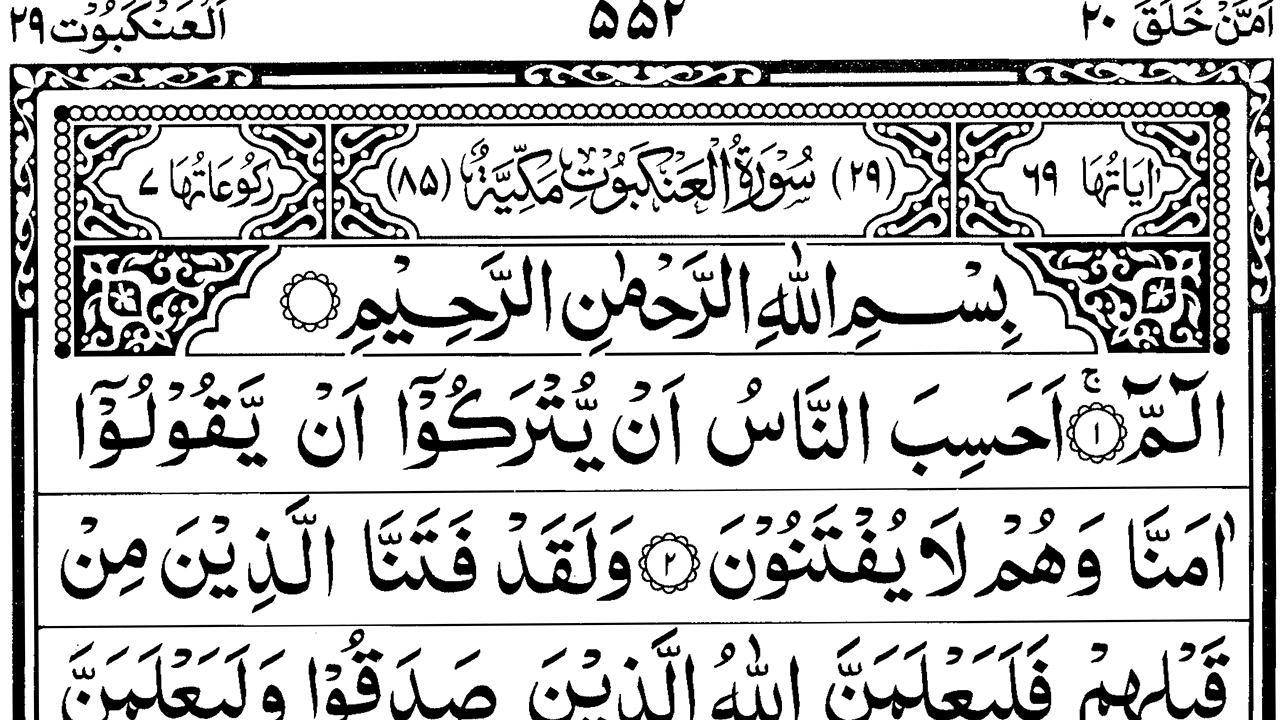 اَمَّنْ خَلَقَ ٢٠ ٥٥٢ اَلْعَنْكَبُوْت ٢٩
اٰيَاتُهَا ٦٩ (٢٩) سُوْرَةُ الْعَنْكَبُوْتِ مَكِّيَّةٌ (٨٥) رُكُوْعَاتُهَا ٧
بِسْمِ اللّٰهِ الرَّحْمٰنِ الرَّحِيْمِ
الٓمّٓ ۚ ١ اَحَسِبَ النَّاسُ اَنْ يُّتْرَكُوْٓا اَنْ يَّقُوْلُوْٓا
اٰمَنَّا وَهُمْ لَا يُفْتَنُوْنَ ٢ وَلَقَدْ فَتَنَّا الَّذِيْنَ مِنْ
قَبْلِهِمْ فَلَيَعْلَمَنَّ اللّٰهُ الَّذِيْنَ صَدَقُوْا وَلَيَعْلَمَنَّ